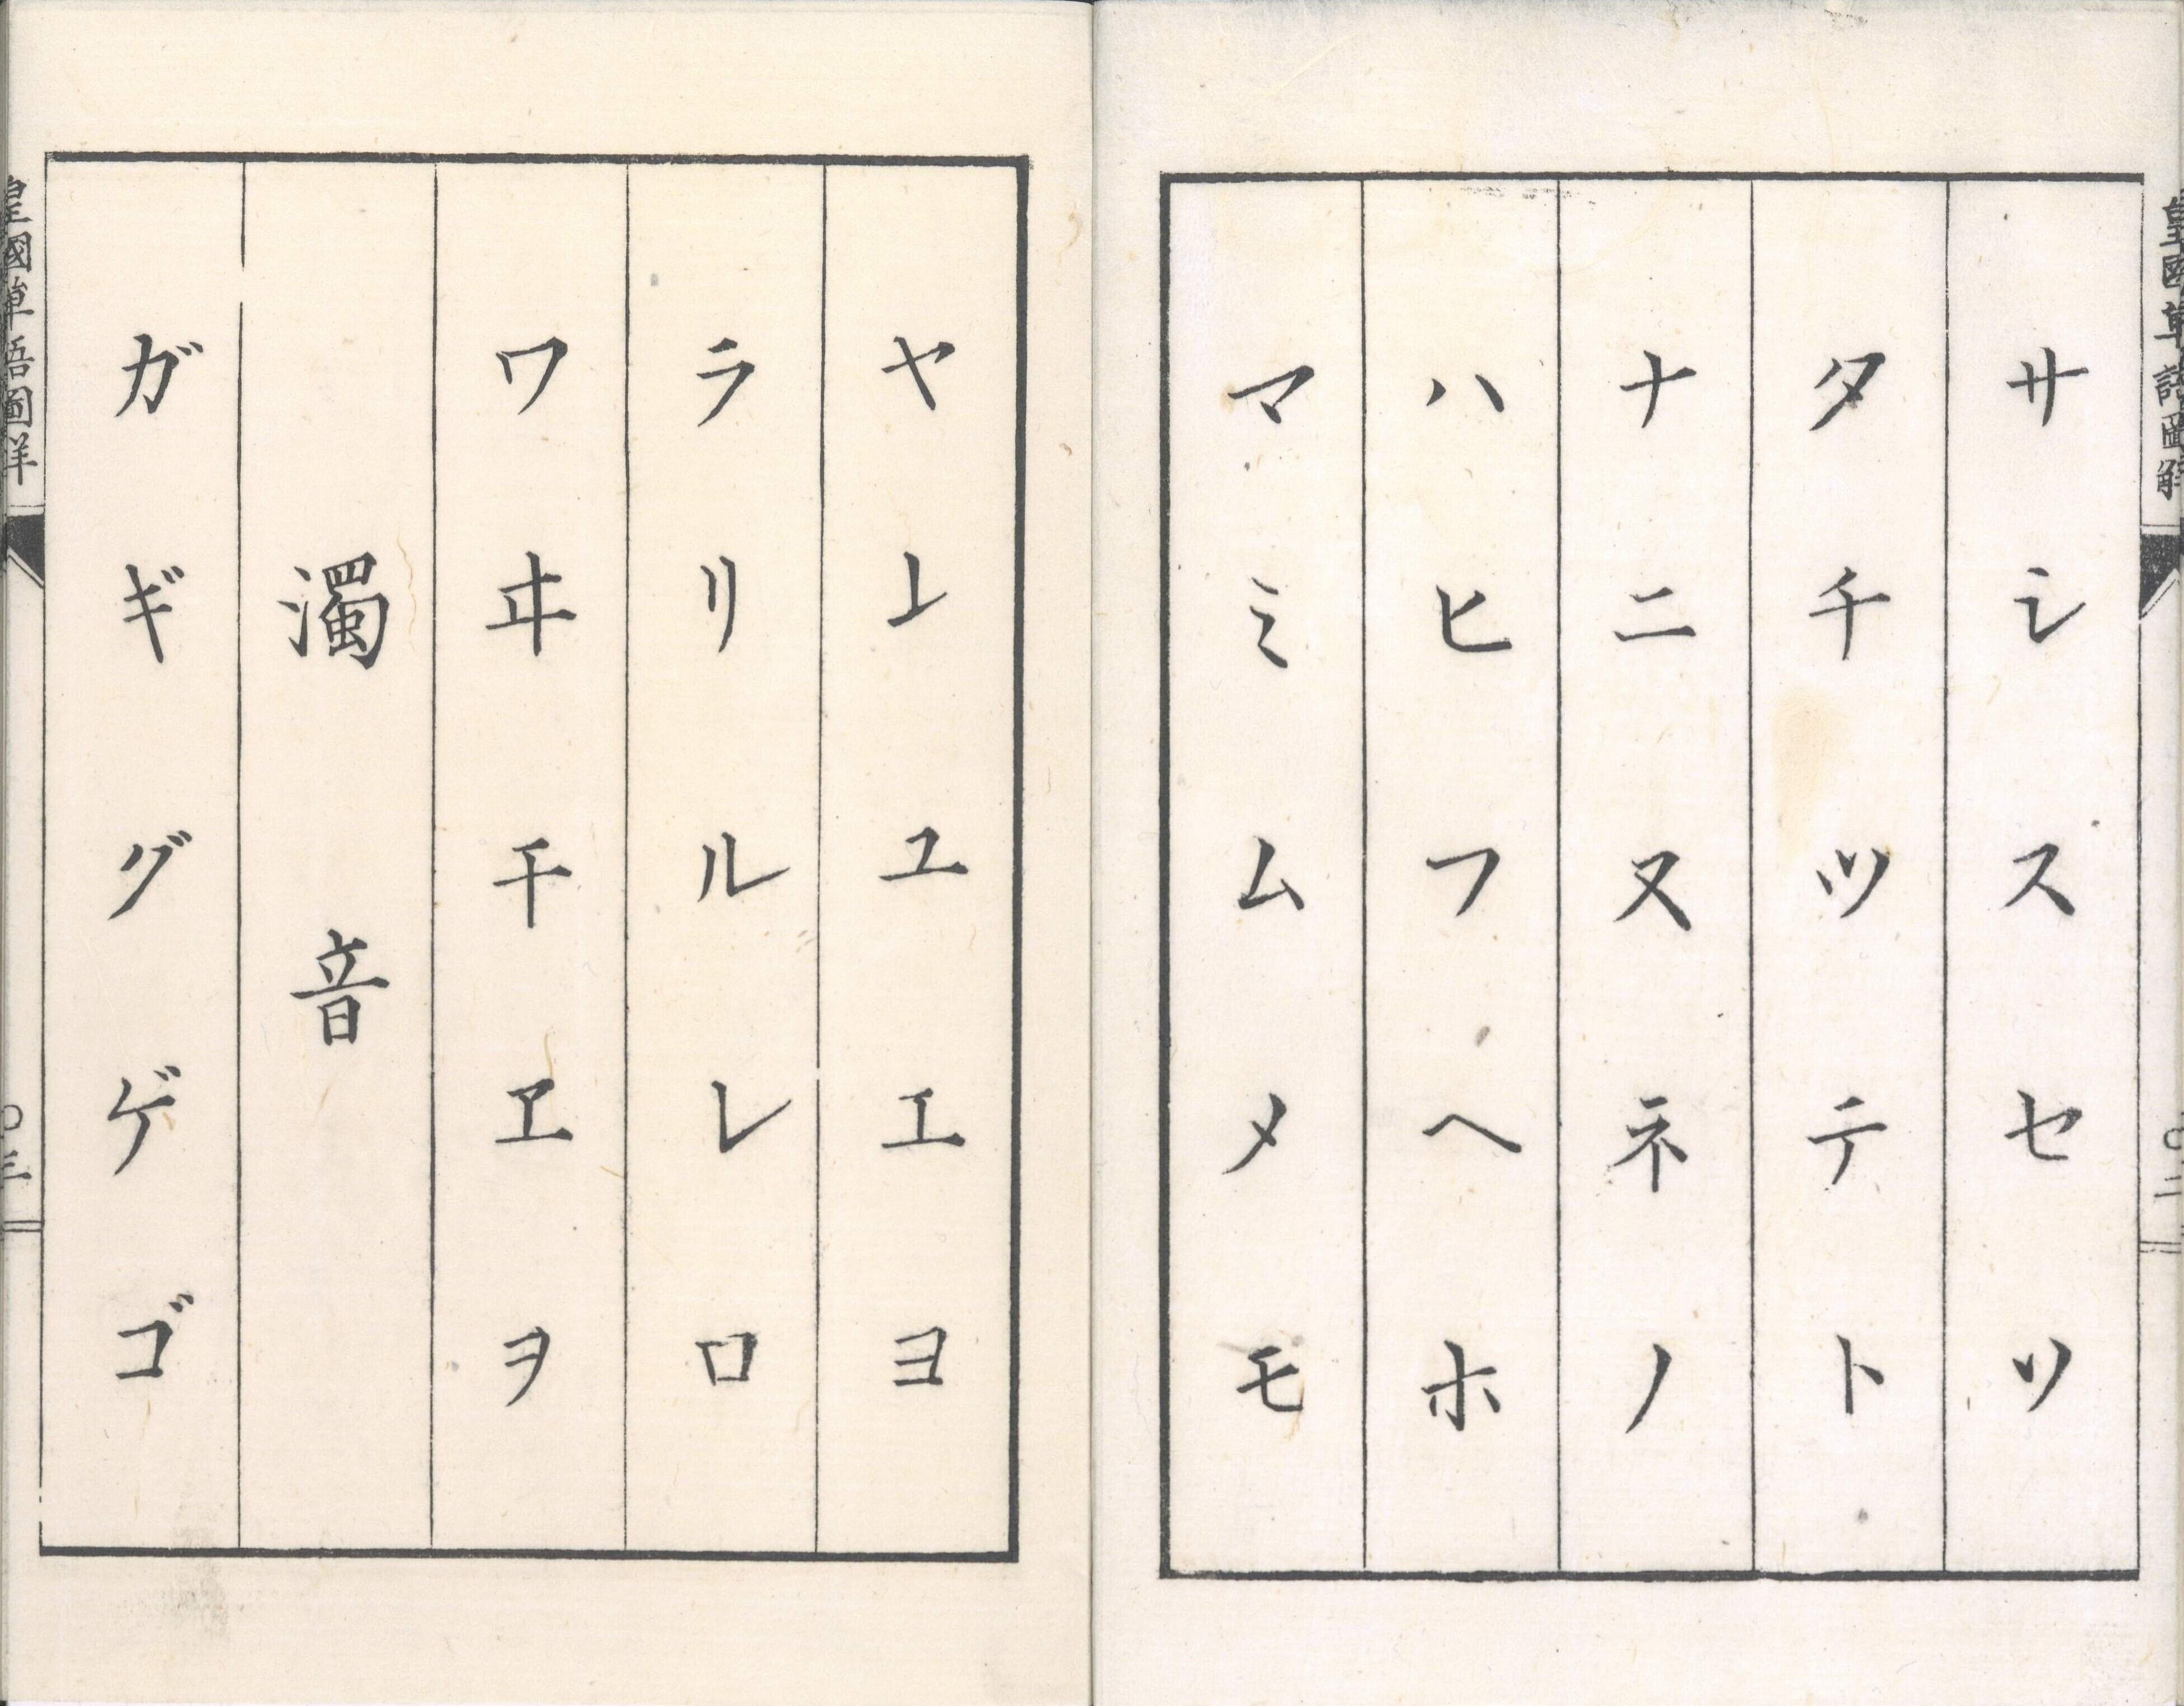 皇國單語圖解
○二
サシスセソ
タチツテト
ナニヌネノ
ハヒフヘホ
マミムメモ
ヤ𛄠ユエヨ
ラリルレロ
ワヰ𛄢ヱヲ
濁音
ガギグゲゴ
皇國單語圖解
○三